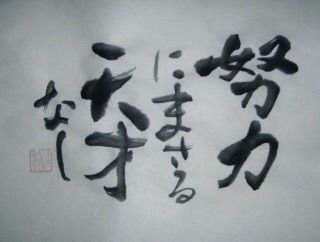 努力
にまさる
天才
なし